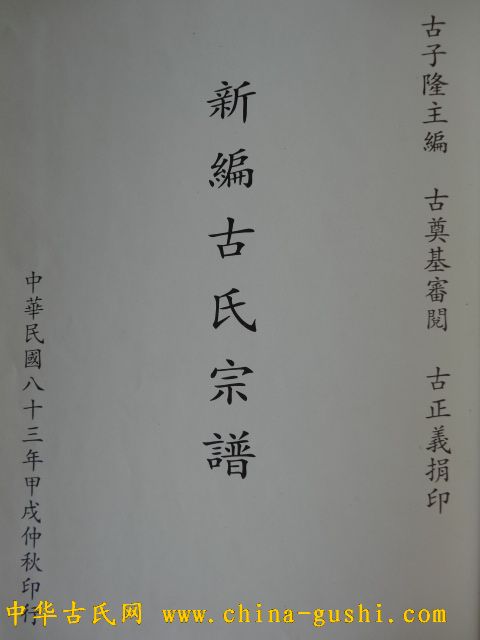 古子隆主編 古奠基審閱 古正義捐印
新編古氏宗譜
中華民國八十三年甲戌仲秋印行
中华古氏网 www.china-gushi.com